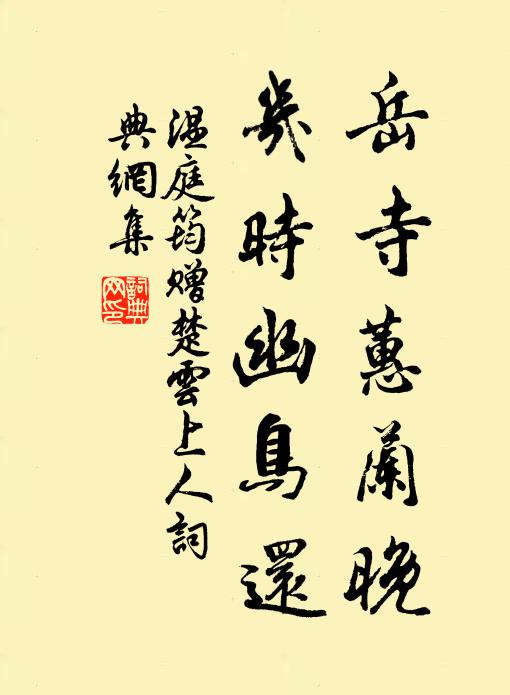 岳寺蕙蘭晚
幾時幽鳥還
溫庭筠贈楚雲上人詞
典網集
詞典網印